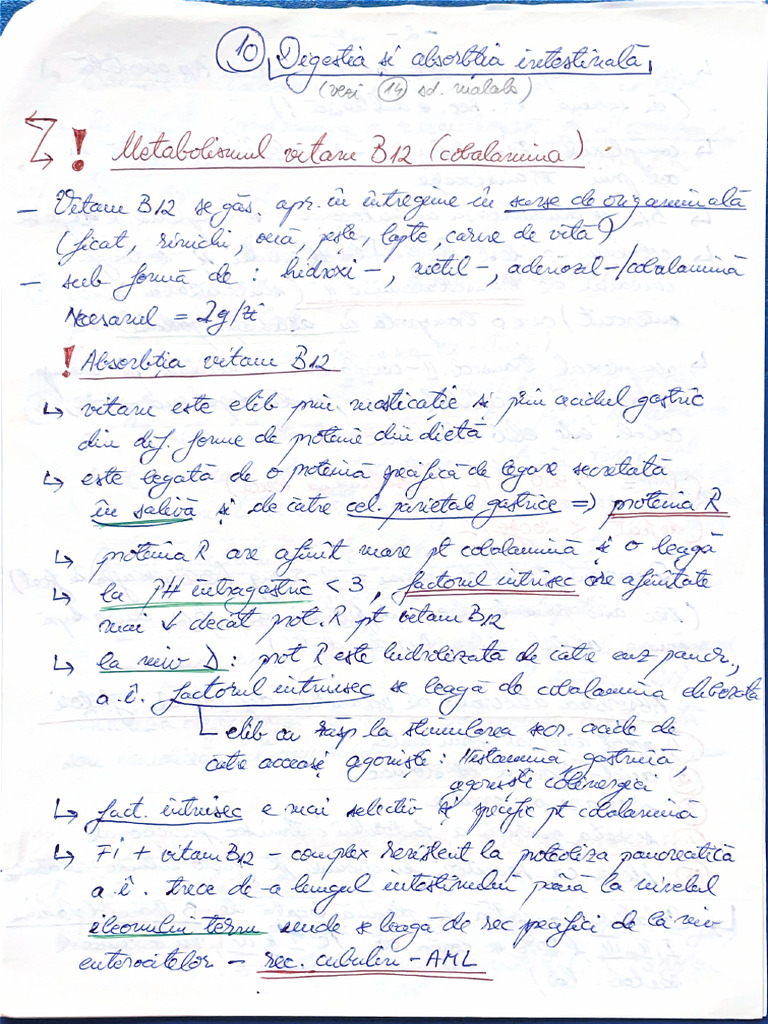 10 Digestia și absorbția intestinală
(vezi 14 sd. malabs)
! Metabolismul vitam B12 (cobalamina)
– Vitam B12 se găs. apr. în întregime în surse de orig animală
(ficat, rinichi, ouă, pește, lapte, carne de vită)
– sub formă de : hidroxi-, metil-, adenozil-/cobalamină
Necesarul = 2g/zi
! Absorbția vitam B12
↳ vitam este elib prin masticatie și prin acidul gastric
din dif. forme de proteine din dietă
↳ este legată de o proteină specifică de legare secretată
în salivă și de către cel. parietale gastrice => proteina R
↳ proteina R are afinit mare pt cobalamină și o leagă
↳ la PH intragastric < 3, factorul intrisec are afinitate
mai ↓ decât prot. R pt vitam B12
↳ la niv D : prot R este hidrolizată de către enz pancr.,
a.î. factorul intrinsec se leagă de cobalamina eliberată
elib ca răsp la stimularea secr. acide de
către aceeași agoniști : Histamină, gastrină,
agoniști colinergici
↳ fact. intrisec e mai selectiv și specific pt cobalamină
↳ Fi + vitam B12 – complex rezistent la proteoliza pancreatică
a.î. trece de-a lungul intestinului până la nivelul
ileonului term unde se leagă de rec specifici de la niv
enterocitelor – rec. cubulin-AML